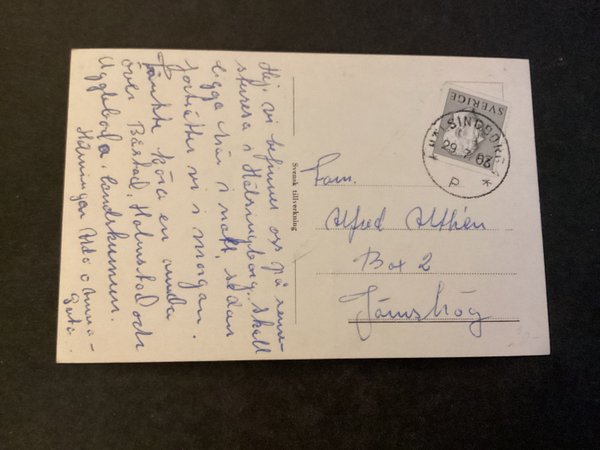 Hej vi befinner oss på semes-
terresa i Hälsingborg. Skall
ligga här i natt, sedan
fortsätter vi i morgon.
Tänkte köra en annan
över Båstad, Halmstad och
Agglebod, landskrunen.
Hälsningar o Anna-
Greta.
Svensk tillverkning
SVERIGE
HÄLSINGBORG
29.7.63
P
Fam.
Alfred Althén
Box 2
Jämshög